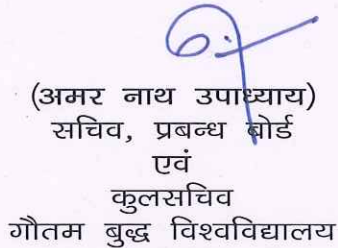 (अमर नाथ उपाध्याय)
सचिव, प्रबन्ध बोर्ड
एवं
कुलसचिव
गौतम बुद्ध विश्वविद्यालय